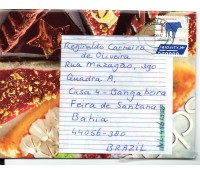 Reginaldo Carneira
de Oliveira
Rua Mazagão, 390
Quadra A,
Casa 4 - Bangabeira
Feira de Santana
Bahia
44056-380
BRAZIL